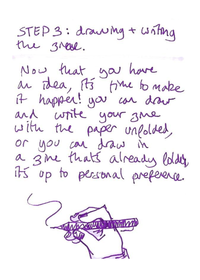 STEP 3: drawing + writing
the zine.
Now that you have
an idea, it's time to make
it happen! you can draw
and write your zine
with the paper unfolded,
or you can draw in
a zine that's already folded,
it's up to personal preference.